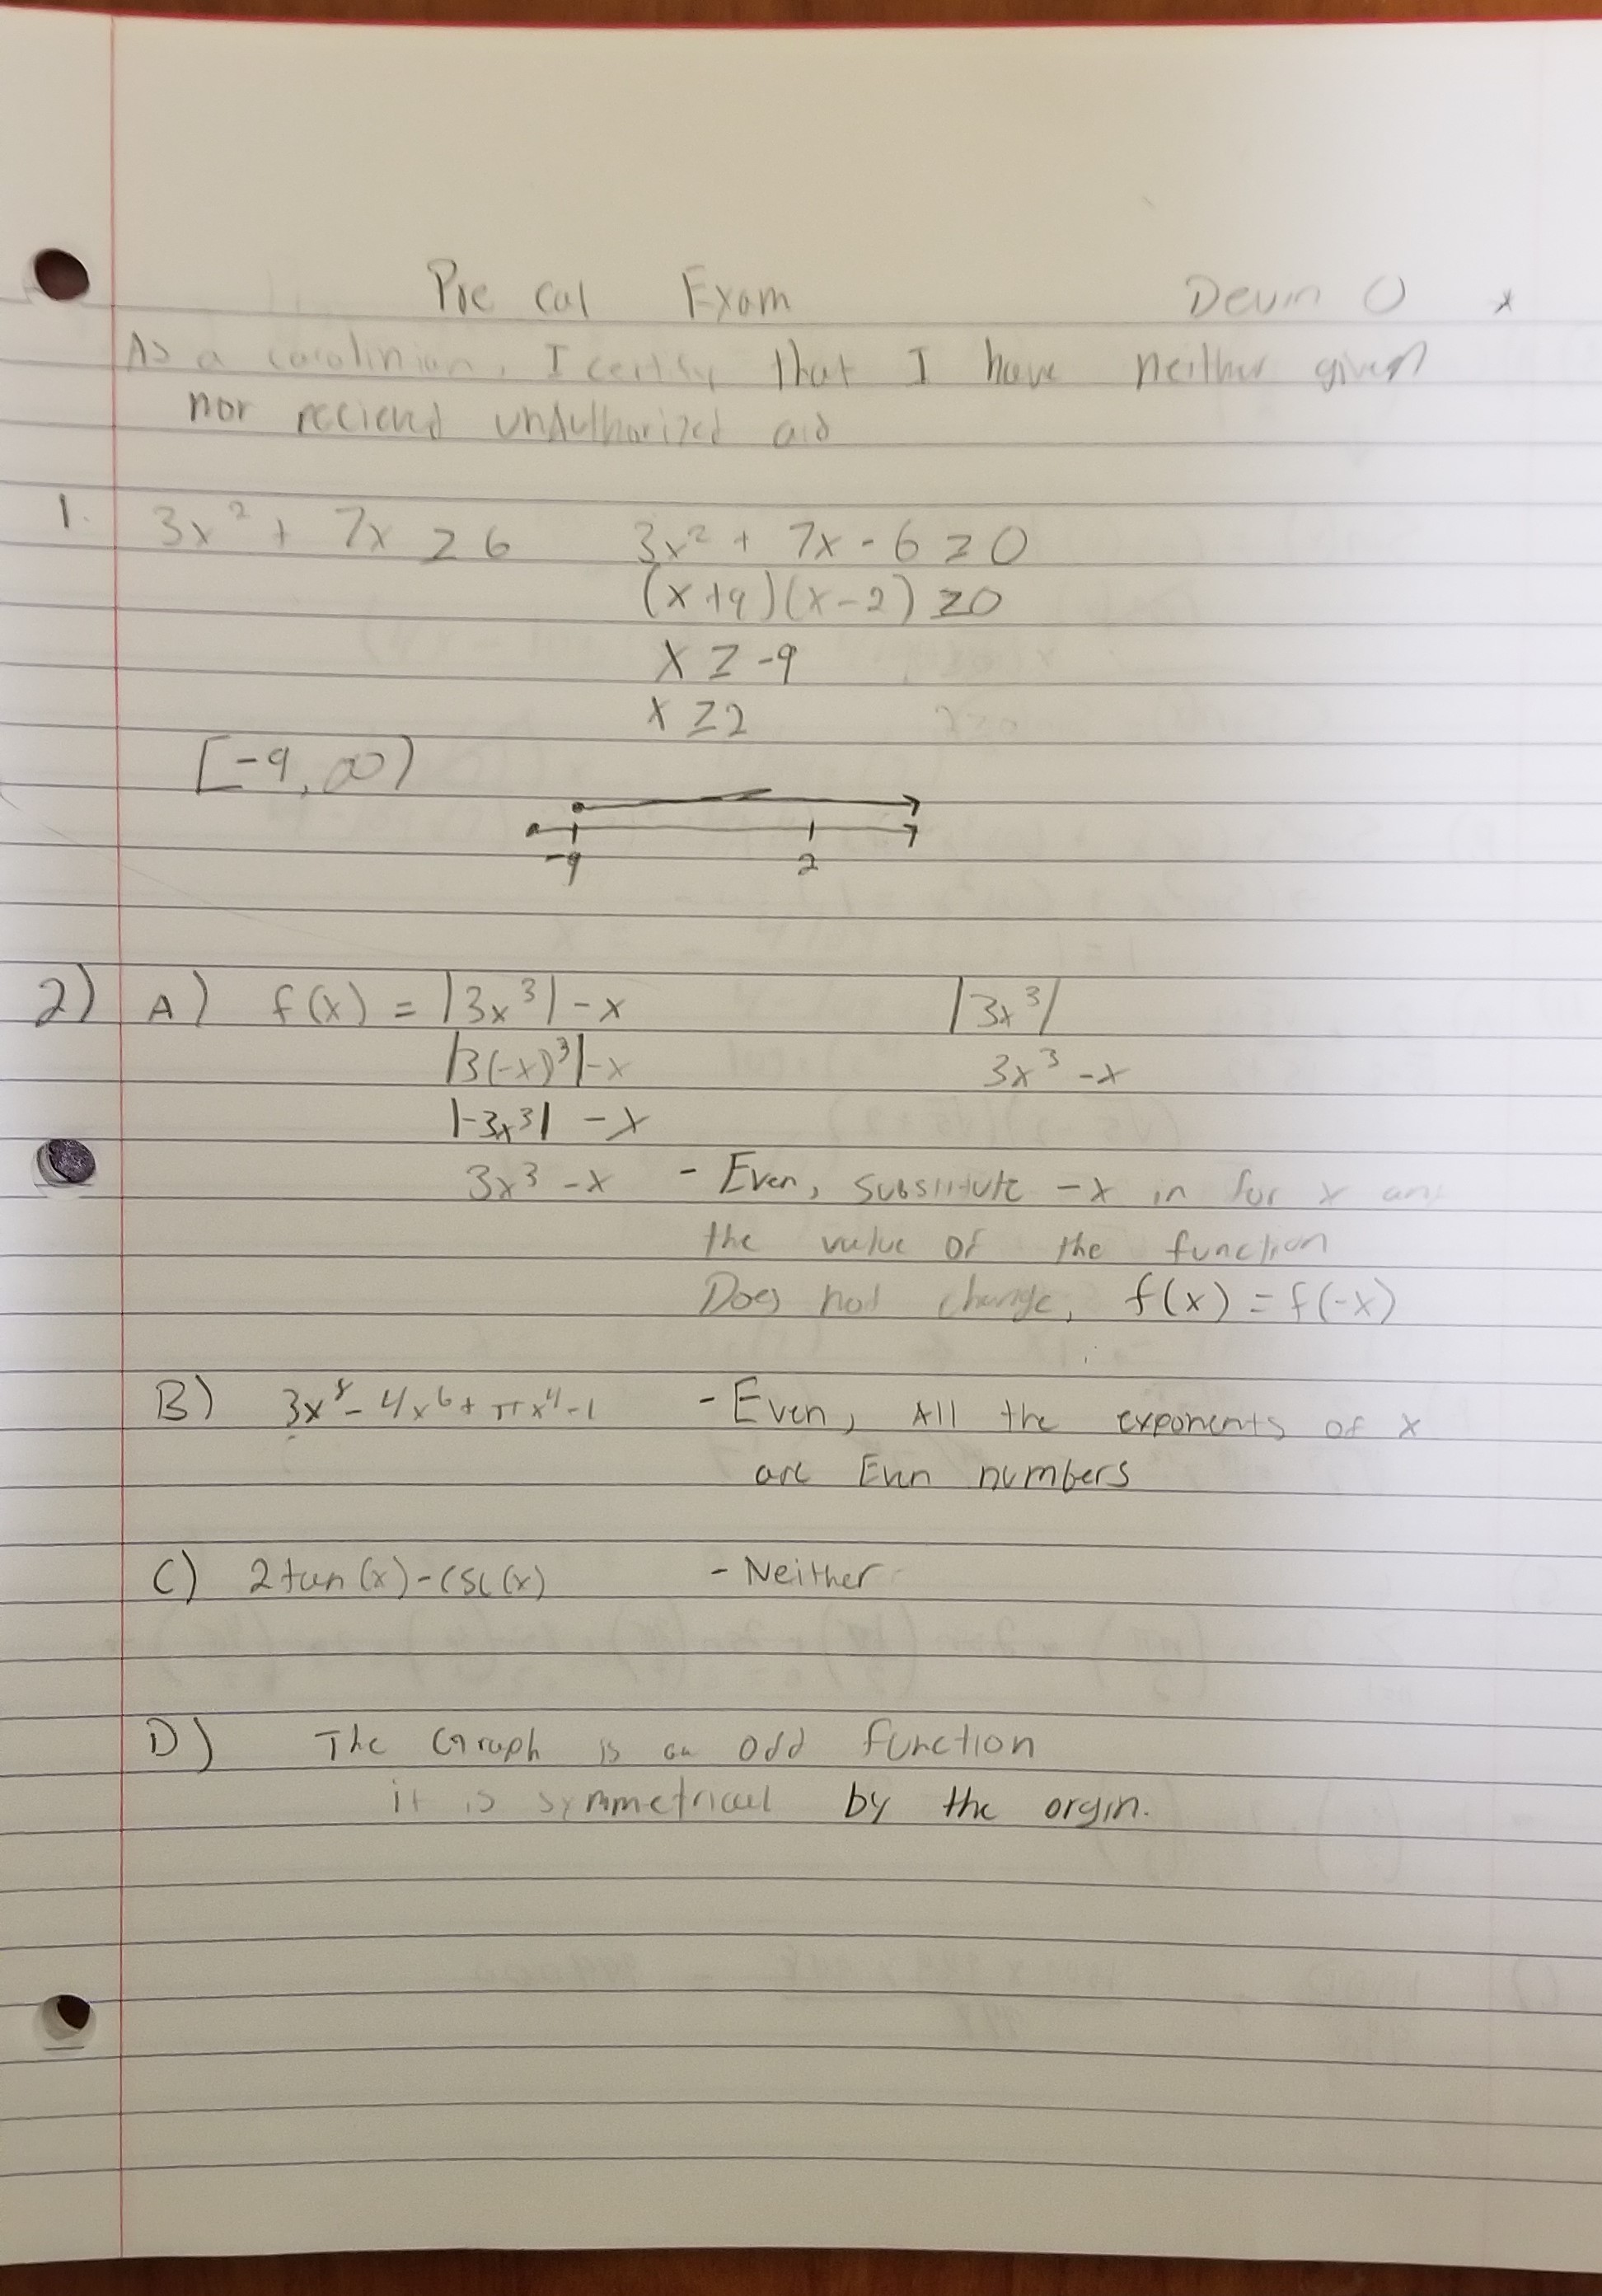 Pre Cal Exam Devin O
As a carolinian, I certify that I have neither given
nor recieved unAuthorized aid
1. 3x² + 7x ≥ 6 3x² + 7x - 6 ≥ 0
(x+9)(x-2) ≥0
x ≥ -9
x ≥2
[-9, ∞)
-9 2
2) A) f(x) = |3x³| - x |3x³|
|3(-x)³|-x 3x³ -x
|-3x³| -x
3x³ -x - Even, substitute -x in for x
the value of the function
Does not change, f(x) = f(-x)
B) 3x⁸ - 4x⁶ + πx⁴ -1 - Even, All the exponents of x
are Even numbers
C) 2tan(x)-csc(x) - Neither
D) The Graph is an odd function
it is symmetrical by the orgin.